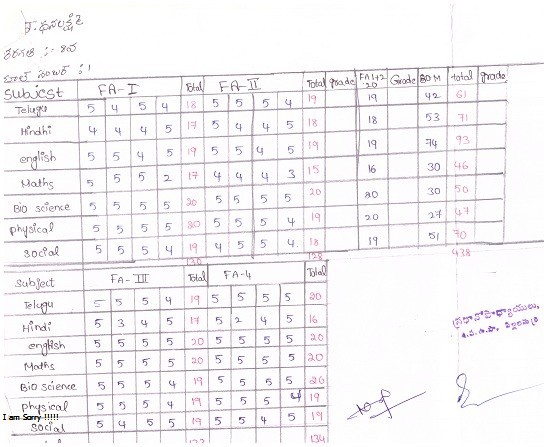 Subject FA-I Total FA-II Total grade FA1+2 20 Grade 80M total grade
Telugu 5 4 5 4 18 5 5 5 4 19 19 42 61
Hindhi 4 4 4 5 17 5 4 4 5 18 18 53 71
english 5 5 4 5 19 5 5 4 5 19 19 74 93
Maths 5 5 5 2 17 4 4 4 3 15 16 30 46
Bio science 5 5 5 5 20 5 5 5 5 20 20 30 50
physical 5 5 5 5 20 5 5 5 4 19 20 27 47
social 5 5 5 4 19 4 5 5 4 18 19 51 70
130 128 438
Subject FA-III Total FA-4 Total
Telugu 5 5 5 4 19 5 5 5 5 20
Hindi 5 3 4 5 17 5 2 4 5 16
english 5 5 5 5 20 5 5 5 5 20
Maths 5 5 5 5 20 5 5 5 5 20
Bio science 5 5 5 4 19 5 5 5 5 20
physical 5 5 5 4 19 5 5 5 4 19
I am Sorry !!!!!
social 5 4 5 5 19 5 5 4 5 19
134
ప్రధానోపాధ్యాయులు,